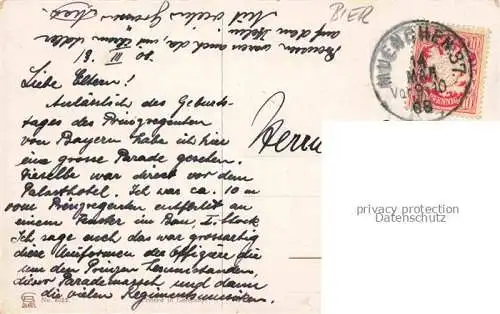 BIER
Mit vielen Grüssen
auf dem Platz
Preussen waren auch da, mit ihrem
13. III 08.
Liebe Eltern!
Anlässlich des Geburts-
tages des Prinzregenten
von Bayern habe ich hier
eine grosse Parade gesehen.
Dieselbe war direct vor dem
Palasthotel. Ich war ca. 10 m
vom Prinzregenten entfernt an
einem Fenster im Bau, I. Stock
Ich sage euch das war grossartig
diese Uniformen der Offiziere die
um den Prinzen herumstanden,
dieser Parademarsch und dann
die vielen Regimentsmusiken.
Herrn
MUENCHEN 37.
MAR
Vor. 9-10
08
PFENNIG
privacy protection
Datenschutz
Printed in Germany